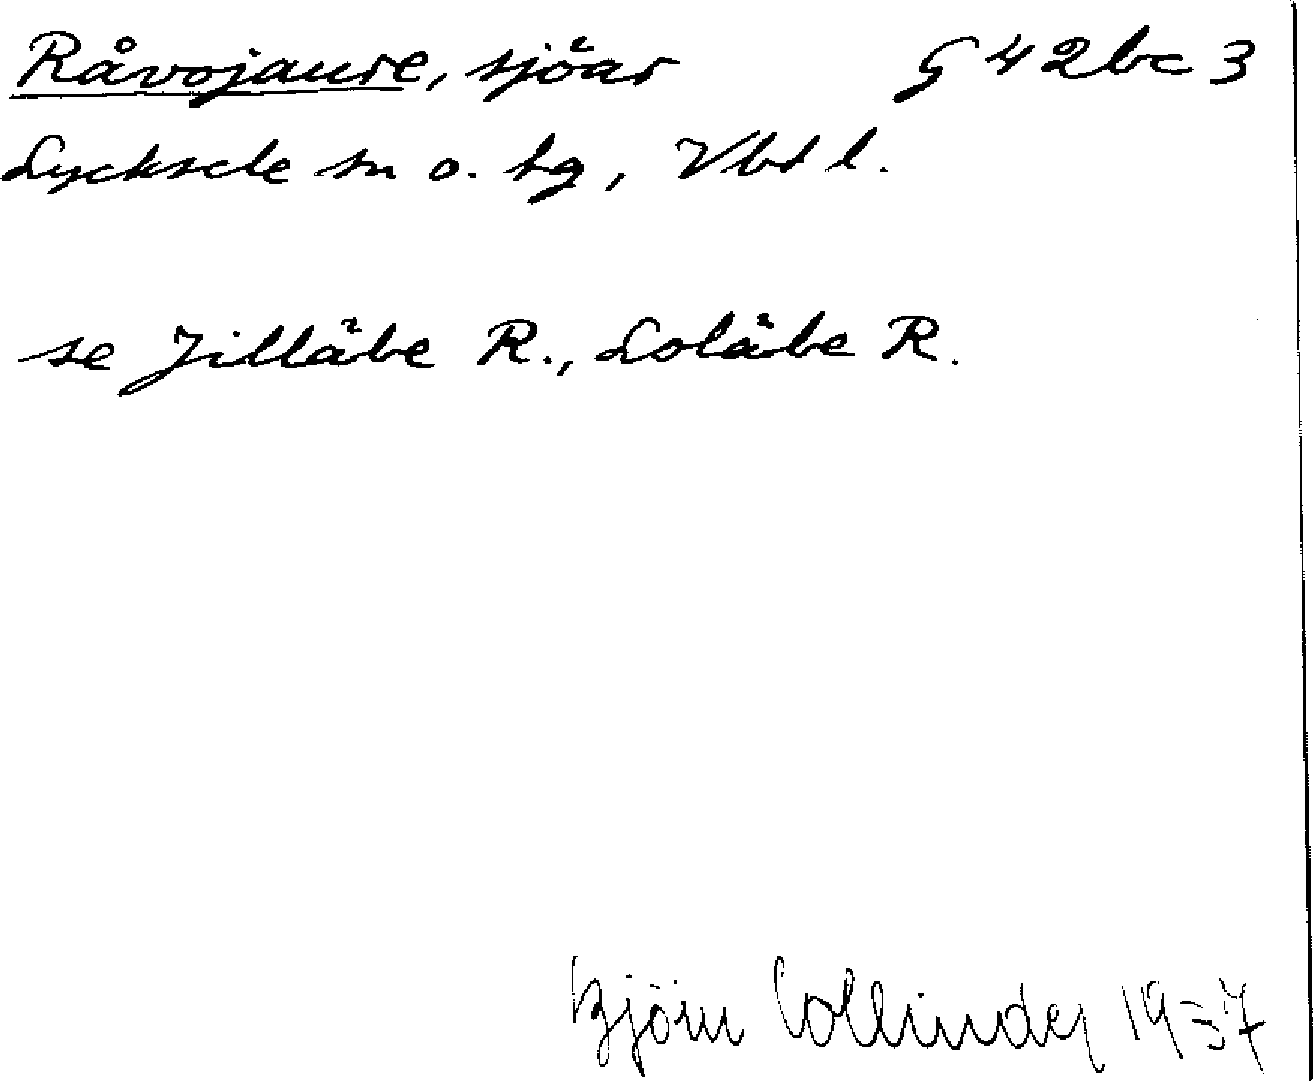 Råvojaure, sjöar G 42bc 3
Lycksele sn o. tg, Vbt l.
se Jilläbe R., Loläbe R.
Björn Collinder 1937